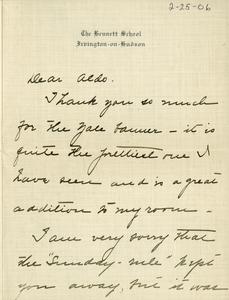 2-25-06
The Bennett School
Irvington-on-Hudson
Dear Aldo.
Thank you so much
for the Yale banner - it is
quite the prettiest one I
have seen and is a great
addition to my room -
I am very sorry that
the "Sunday-rule" kept
you away, but it was